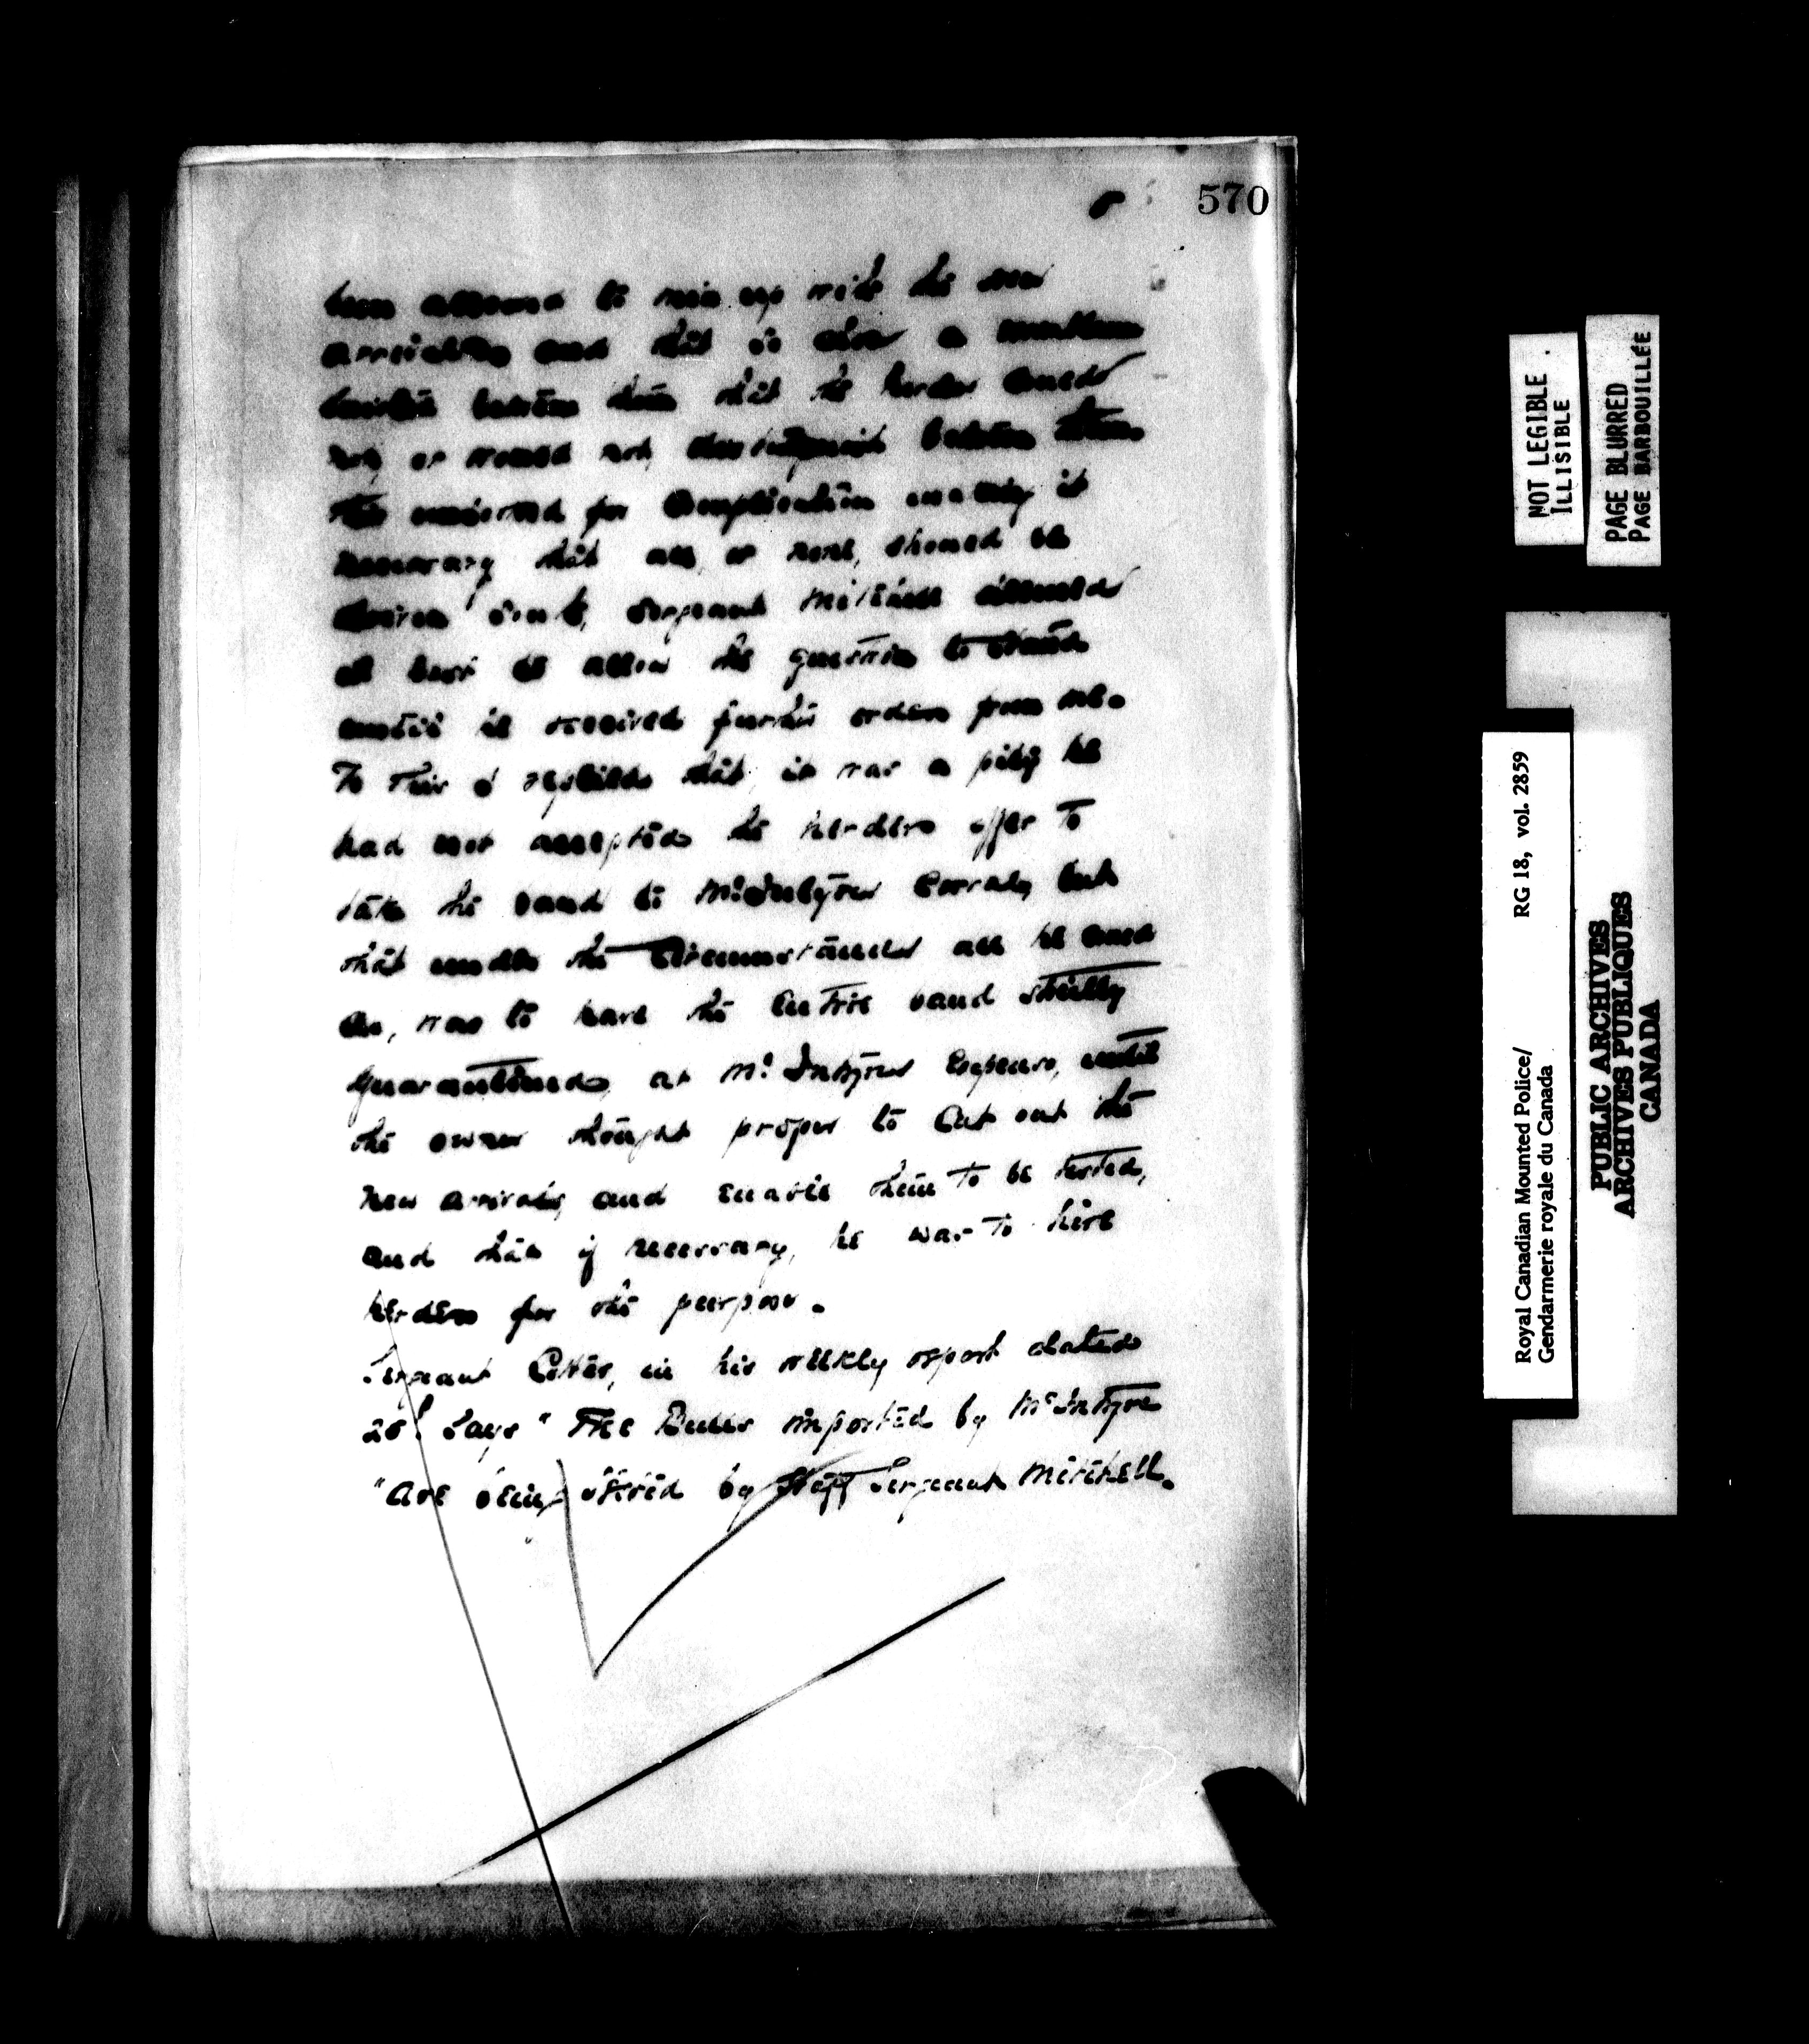 570
been allowed to mix up with the new
arrivals and that is also a
between them that the herder could
not, or would not, distinguish between them.
This for complication it
necessary that all, or none, should be
Sergeant Mitchell
it best to allow the question to stand
until he received further orders from me.
To this I replied that, it was a pity he
had not accepted the herders offer to
take the band to McIntyres Corrals, but
that under the circumstances all he could
do, was to have the entire band strictly
quarantined, at McIntyres expense, until
the owner thought proper to cut out the
new arrivals, and enable them to be tested,
and that if necessary, he was to hire
herders for the purpose.
Sergeant Cotter, in his weekly report dated
28th says "The Bulls imported by McIntyre
"are being tested by Staff Sergeant Mitchell.
NOT LEGIBLE
ILLISIBLE
PAGE BLURRED
PAGE BARBOUILLÉE
Royal Canadian Mounted Police/ RG 18, vol. 2859
Gendarmerie royale du Canada
PUBLIC ARCHIVES
ARCHIVES PUBLIQUES
CANADA